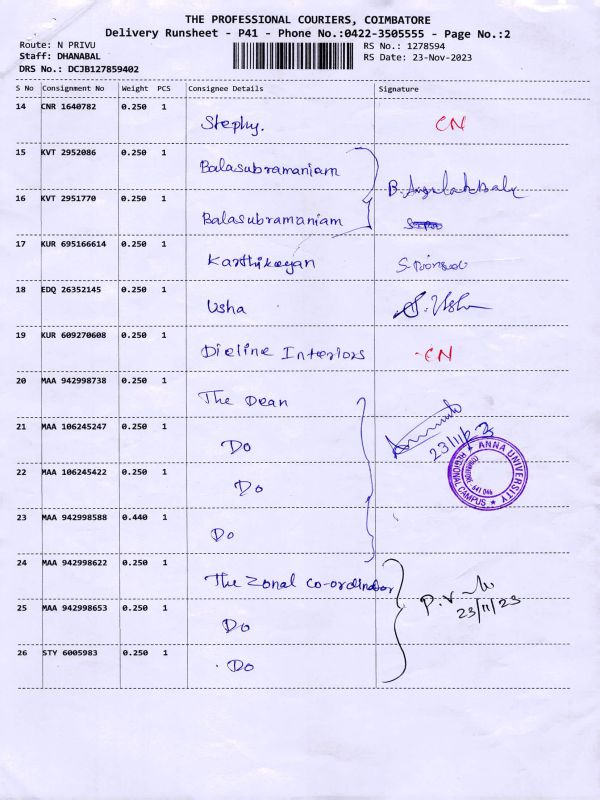 THE PROFESSIONAL COURIERS, COIMBATORE
Delivery Runsheet - P41 - Phone No.:0422-3505555 - Page No.:2
Route: N PRIVU
RS No.: 1278594
Staff: DHANABAL
RS Date: 23-Nov-2023
DRS No.: DCJB127859402
S No Consignment No Weight PCS Consignee Details Signature
14 CNR 1640782 0.250 1 Stephy. CN
15 KVT 2952086 0.250 1 Balasubramaniam
16 KVT 2951770 0.250 1 Balasubramaniam
17 KUR 695166614 0.250 1 Karthikeyan
18 EDQ 26352145 0.250 1 Usha S. Usha
19 KUR 609270608 0.250 1 Dieline Interiors CN
20 MAA 942998738 0.250 1 The Dean
21 MAA 106245247 0.250 1 Do 23/11/23
22 MAA 106245422 0.250 1 Do
ANNA UNIVERSITY
REGIONAL CAMPUS
641 046
23 MAA 942998588 0.440 1 Do
24 MAA 942998622 0.250 1 The Zonal Co-ordinator
25 MAA 942998653 0.250 1 Do 23/11/23
26 STY 6005983 0.250 1 Do